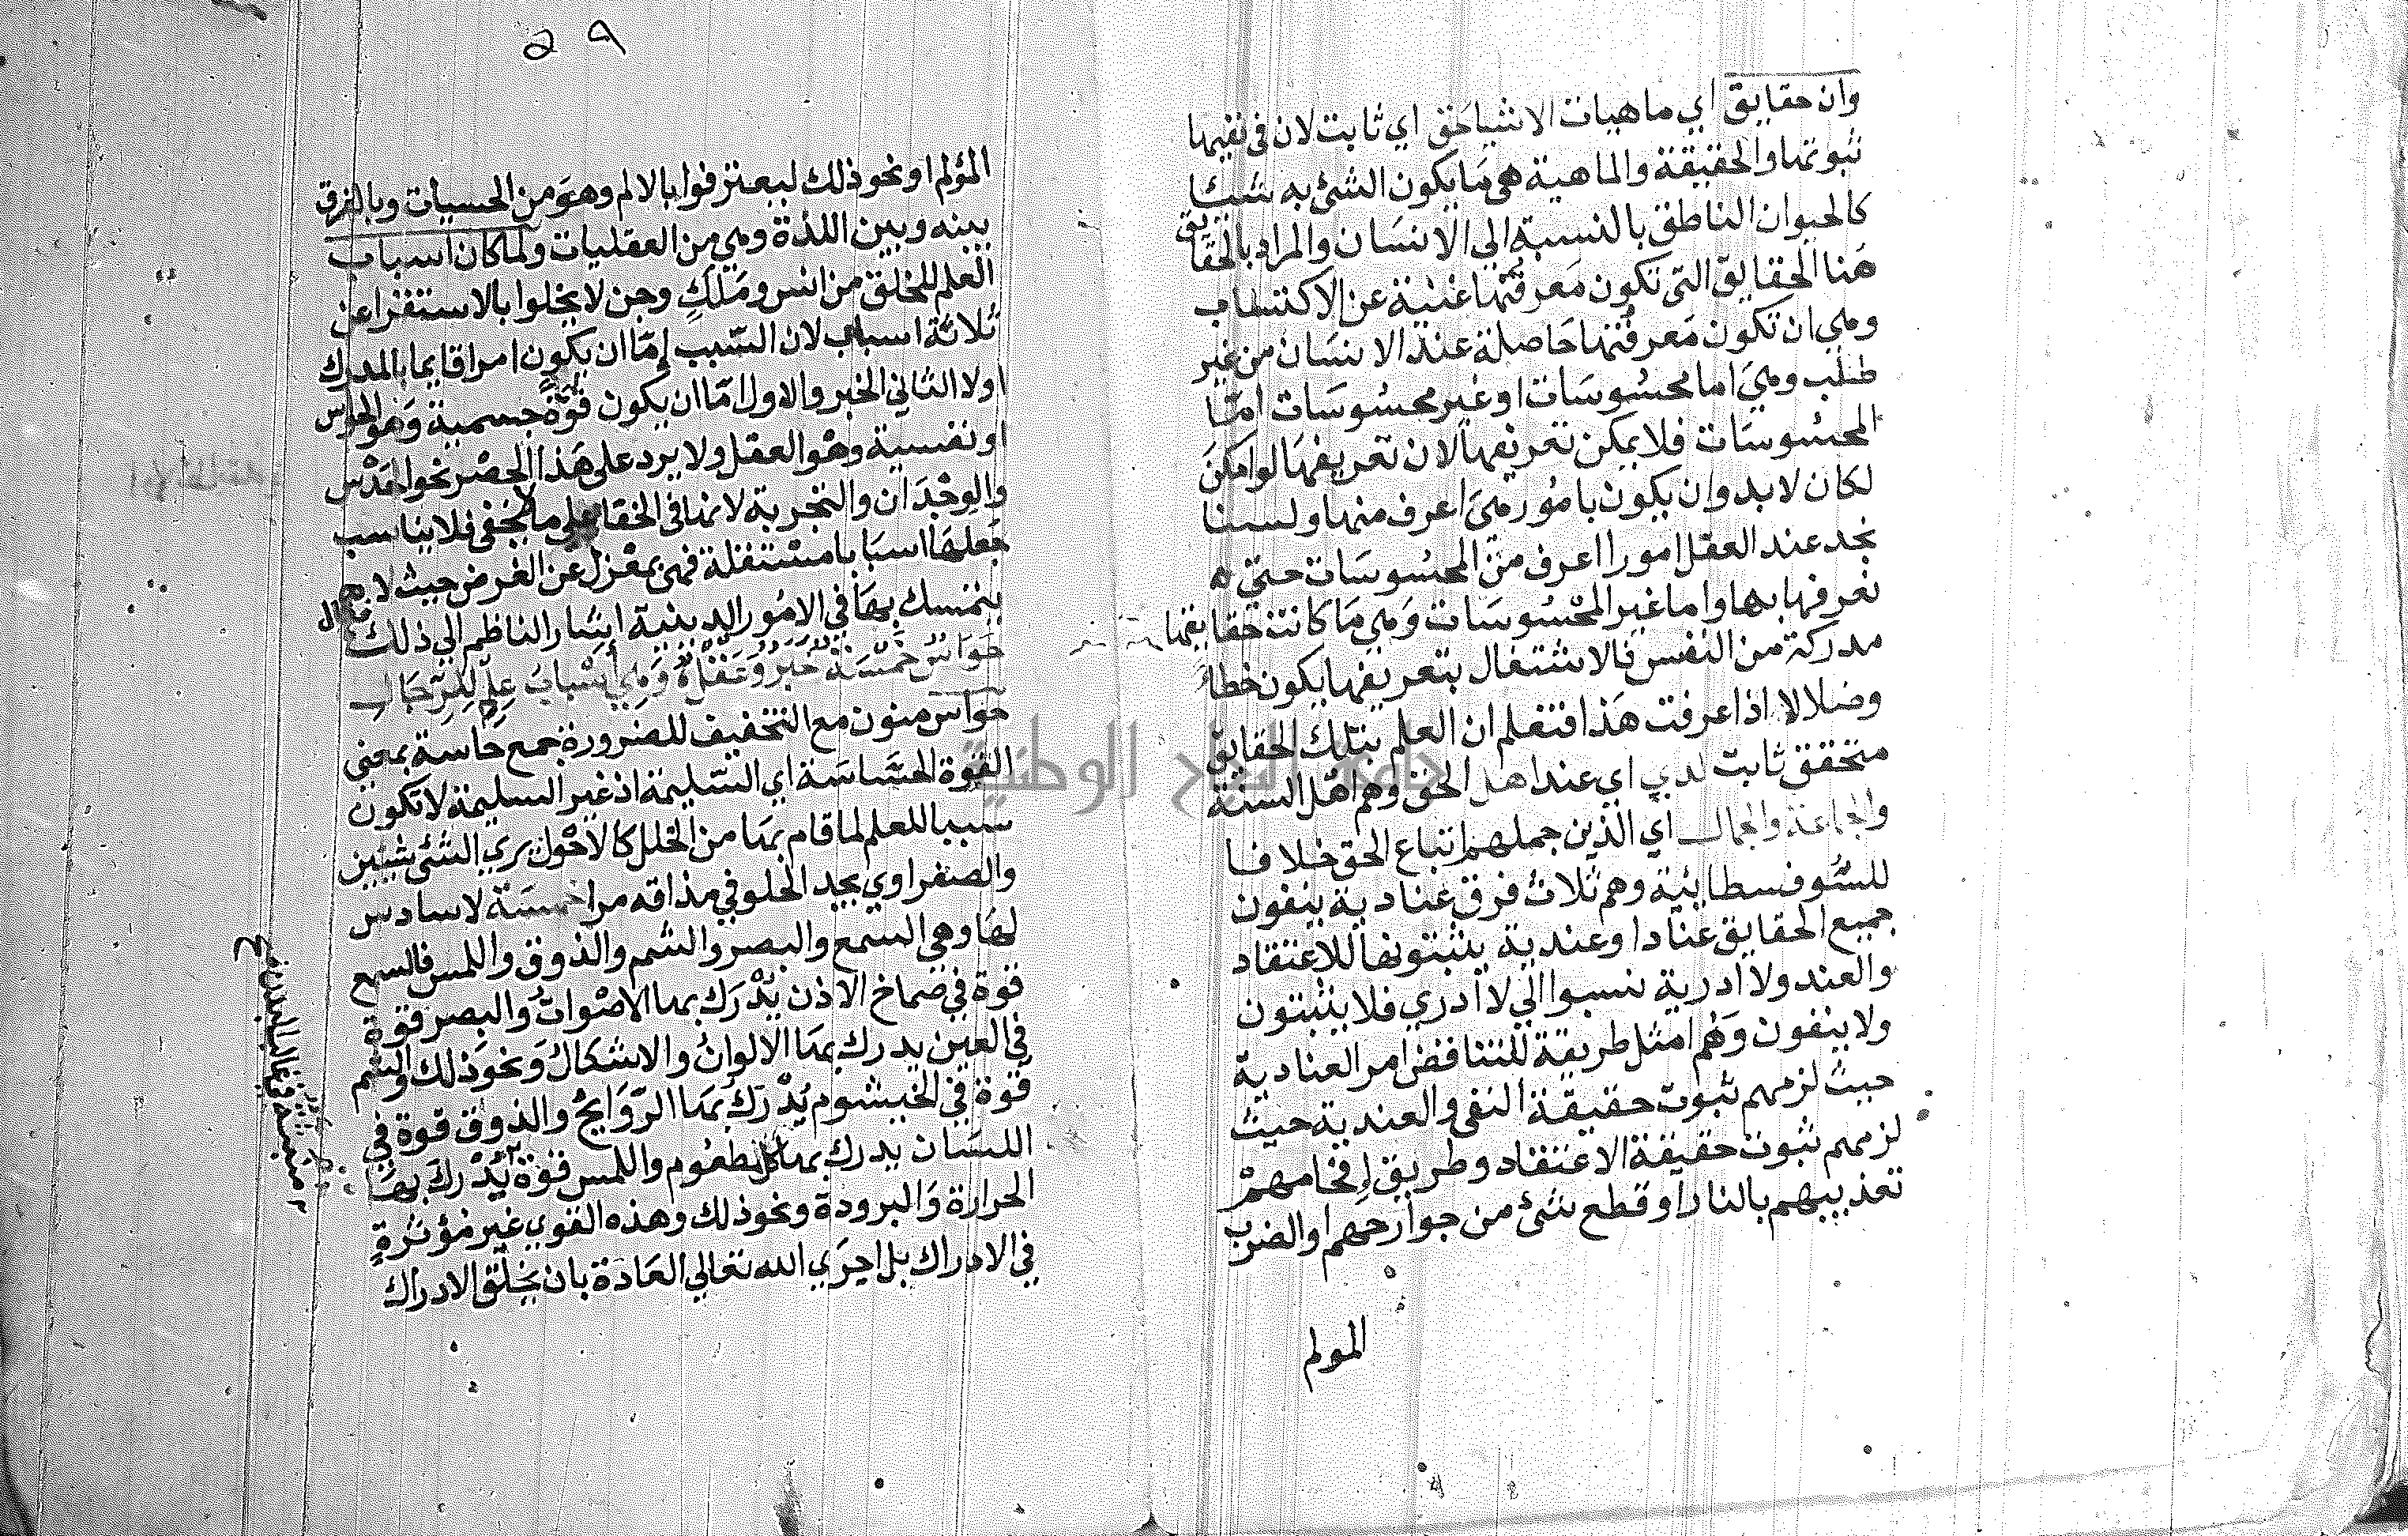 وان حقايق اي ماهيات الاشيا حق اي ثابت لان في نفيها
ثبوتها والحقيقة والماهية هي ما يكون الشئ به شيئا
كالحيوان الناطق بالنسبة الي الانسان والمراد بالحقايق
هنا الحقايق التي تكون معرفتها غنية عن الاكتساب
وهي ان تكون معرفتها حاصلة عند الانسان من غير
طلب وهي اما محسوسات او غير محسوسات امّا
المحسوسات فلا يمكن تعريفها لان تعريفها لو امكن
لكان لابد وان يكون بامور هي اعرف منها ولسنا
نجد عند العقل امورا اعرف من المحسوسات حتي
نعرفها بها واما غير المحسوسات وهي ما كانت حقايقها
مدركة من النفس فالاشتغال بتعريفها يكون خطاء
وضلالا اذا عرفت هذا فتعلم ان العلم بتلك الحقايق
متحقق ثابت لدي اي عند اهل الحق وهم اهل السنة
والجاعة والجمال اي الذين جملهم اتباع الحق خلافا
للسوفسطايية وهم ثلاث فرق عنادية ينفون
جميع الحقايق عنادا وعندية يثبتونها للاعتقاد
والعند ولا ادرية نسبوا الي لا ادري فلا يثبتون
ولا ينفون وهم امثل طريقة للتناقض امر العنادية
حيث لزمهم ثبوت حقيقة النفي والعندية حيث
لزمهم ثبوت حقيقة الاعتقاد وطريق افحامهم
تعذيبهم بالنار او قطع شئ من جوارحهم او الضرب
المولم
٥٩
المؤلم او نحو ذلك ليعترفوا بالالم وهو من الحسيات وبالفرق
بينه وبين اللذة وهي من العقليات ولما كان اسباب
العلم للخلق من انس وملك وجن لا يخلوا بالاستقرا عن
ثلاثة اسباب لان السبب إمّا ان يكون امرا قايما بالمدرك
اولا الثاني الخبر والاول امّا ان يكون قوّة جسمية وهو الحواس
او نفسية وهو العقل ولا يرد علي هذا الحصر نحو الحدس
والوجدان والتجربة لانها في الخفا علي ما لا يخفي فلا يناسب
جعلها اسبابا مستقلة فهي بمعزل عن الغرض حيث لا
يتمسك بها في الامور الدينية اشار الناظم الي ذلك فقال
حواس خمسة خبر وعقل وهي اسباب علم للرجال
حواس منون مع التخفيف للضرورة جمع حاسة بمعني
القوة الحساسة اي السليمة اذ غير السليمة لا تكون
سببا للعلم لما قام بها من الخلل كالاحول يري الشئ شيئين
والصفراوي يجد الحلو في مذاقه مرا خمسة لا سادس
لها وهي السمع والبصر والشم والذوق واللمس فالسمع
قوة في صماخ الاذن يدرك بها الاصوات والبصر قوة
في العين يدرك بها الالوان والاشكال ونحو ذلك والشم
قوة في الخيشوم يدرك بها الروايح والذوق قوة في
اللسان يدرك بها الطعوم واللمس قوة يدرك بها
الحرارة والبرودة ونحو ذلك وهذه القوي غير مؤثرة
في الادراك بل اجري الله تعالي العادة بان يخلق الادراك
منبثة في
جامعة النجاح الوطنية